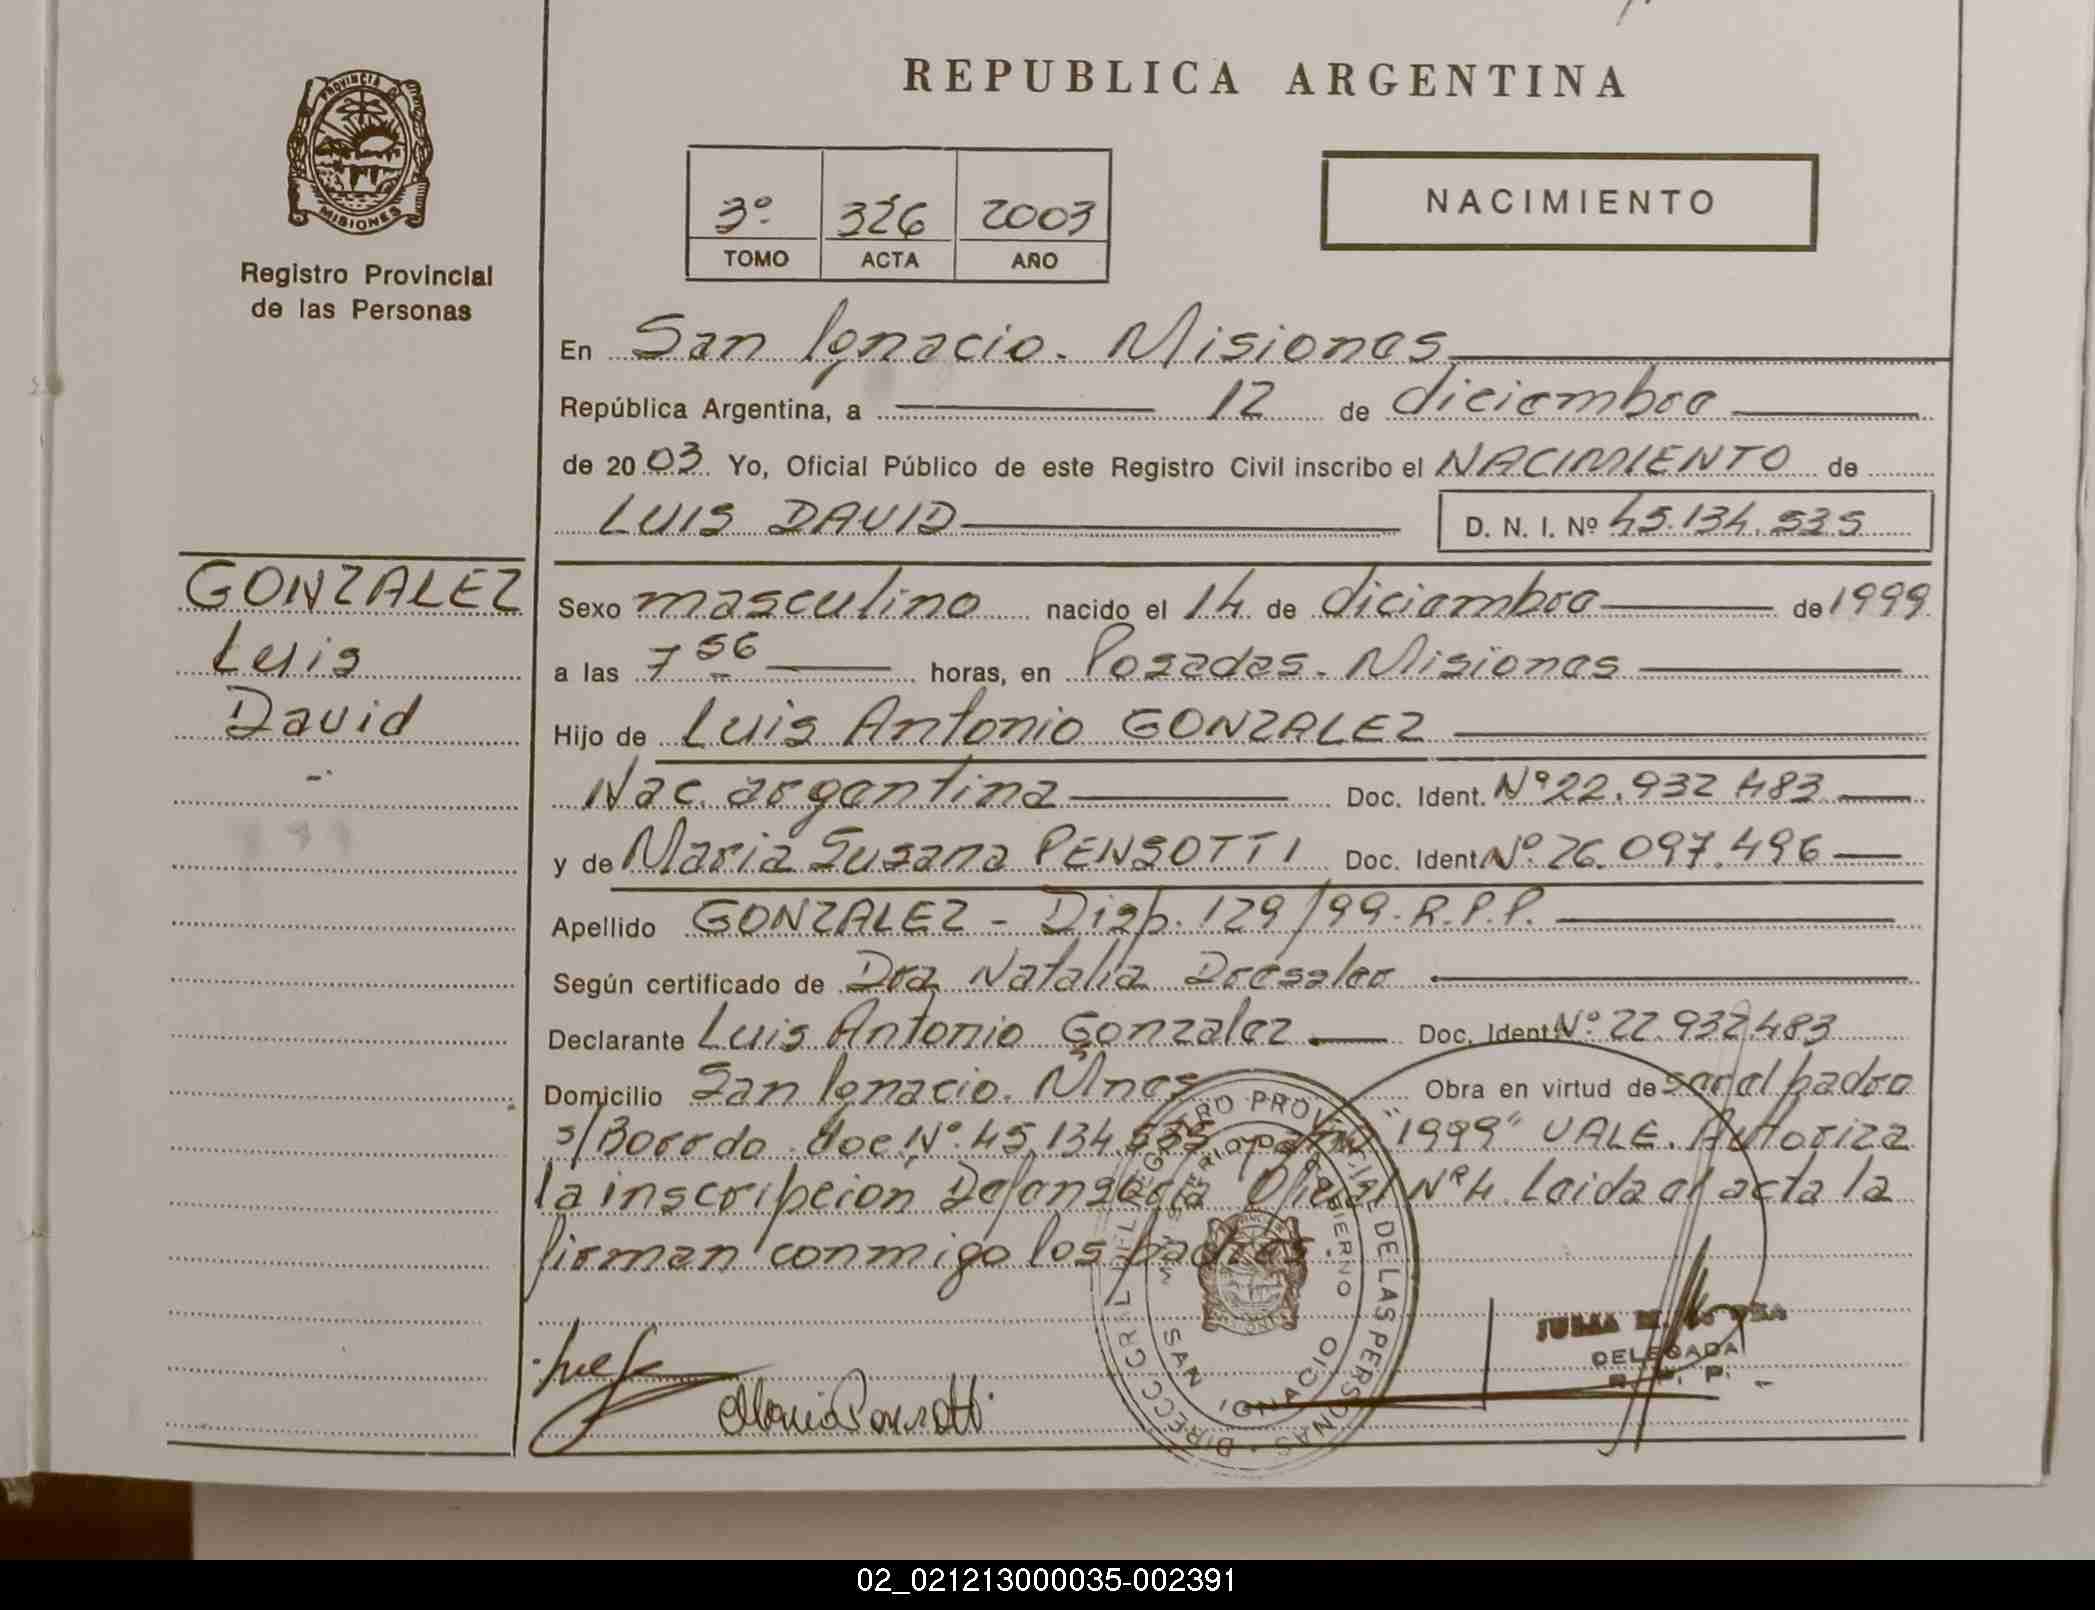 REPUBLICA ARGENTINA
PROVINCIA DE
MISIONES
Registro Provincial
de las Personas
3º 326 2003
TOMO ACTA AÑO
NACIMIENTO
En San Ignacio. Misiones
República Argentina, a 12 de diciembre
de 2003 Yo, Oficial Público de este Registro Civil inscribo el NACIMIENTO de
LUIS DAVID D. N. I. Nº 45.134.535
GONZALEZ
Luis
David
Sexo masculino nacido el 14 de diciembre de 1999
a las 7 56 horas, en Posadas. Misiones
Hijo de Luis Antonio GONZALEZ
Nac. argentina Doc. Ident. Nº 22.932 483
y de Maria Susana PENSOTTI Doc. Ident. Nº 26.097.496
Apellido GONZALEZ - Disp. 129/99. R.P.P.
Según certificado de Dra Natalia Dressler
Declarante Luis Antonio Gonzalez Doc. Ident. Nº 22.932.483
Domicilio San Ignacio. Mnes Obra en virtud de ser el padre
s/Borrdo. doc. Nº 45.134.535 "1999" VALE. Autoriza
la inscripcion Defensoria Oficial Nº 4. Leida el acta la
firman conmigo los padres.
DIRECC GRAL DEL REGISTRO PROVINCIAL DE LAS PERSONAS
GOBIERNO
SAN IGNACIO
Maria Pensotti
DELEGADA
R. P. P.
02_021213000035-002391